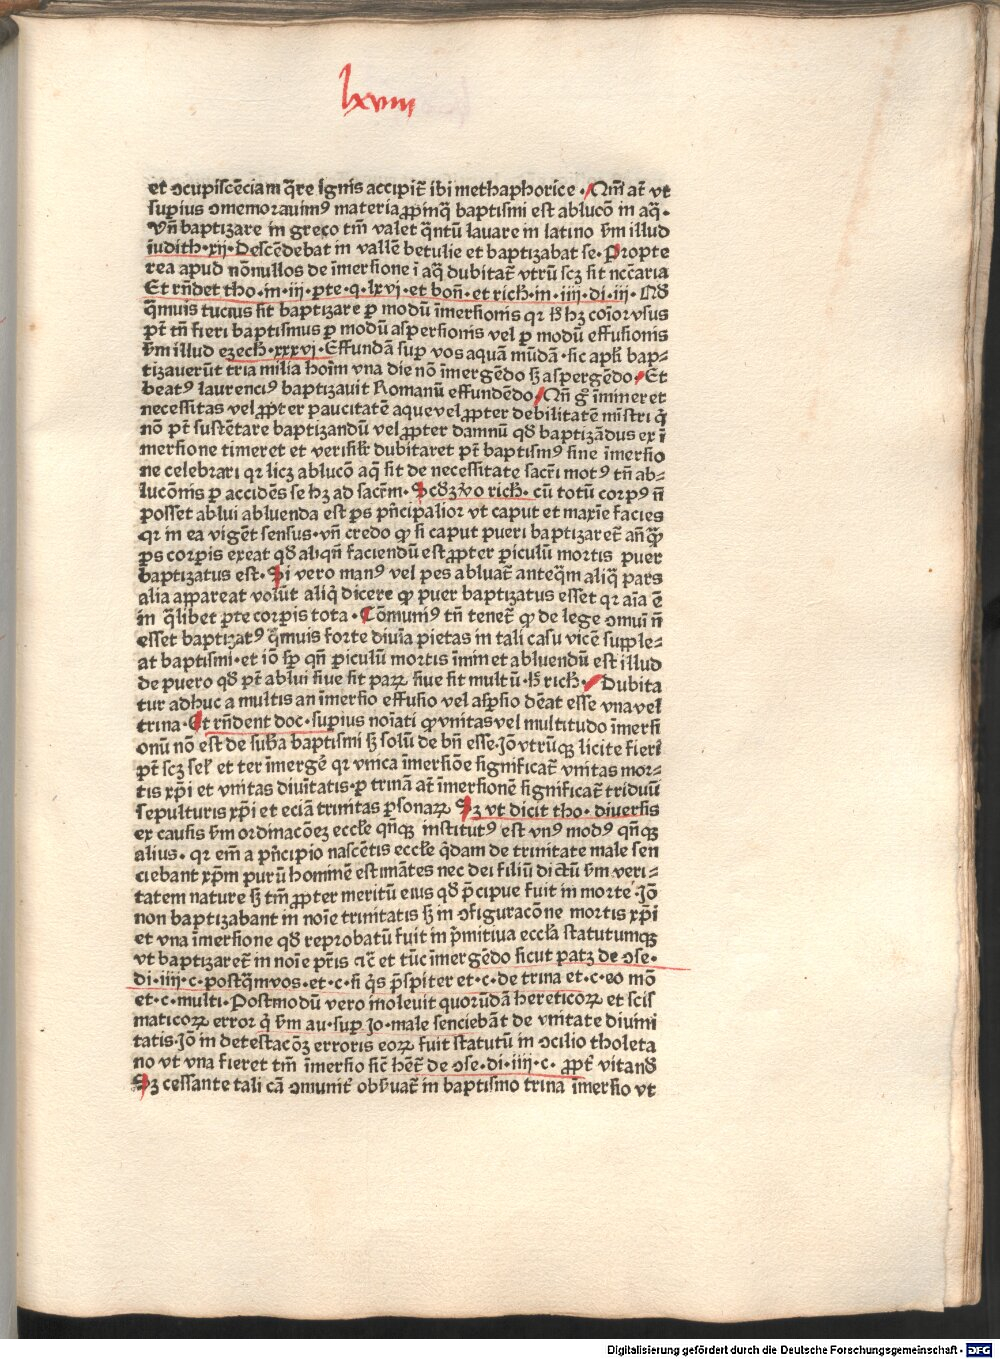 lxviii
et ꝯcupiscēciam q̄re ignis accipit̄ ibi methaphorice · Qm̄ at̄ vt
supius ꝯmemorauimꝰ materia ꝓpinq̄ baptismi est ablucōn in aq̄·
Vn̄ baptizare in greco tm̄ valet q̄ntū lauare in latino ẜm illud
iudith·xij· Descēdebat in vallē betulie et baptizabat se· Propte
rea apud nōnullos de īmersione ī aq̄ dubitat̄ vtrū scꝫ sit nec̄caria
Et rn̄det tho·in·iij·ꝑte·q·lxvi·et bon̄·et rich̄·in·iiij·di·iij· Qđ
q̄muis tucius sit baptizare ꝑ modū īmersionis qr hꝫ coīor vsus
pt̄ tn̄ fieri baptismus ꝑ modū aspersionis vel ꝑ modū effusionis
ẜm illud ezech̄·xxxvi·Effundā suꝑ vos aquā mūdā·sic apl̄i bap⸗
tizauerūt tria milia hoīm vna die nō īmergēdo sꝫ aspergēdo· Et
beatꝰ laurenciꝰ baptizauit Romanū effundēdo· Qn̄ gͦ īminer et
necessitas vel ꝓpter paucitatē aque vel ꝓpter debilitatē mīstri q̄
nō pt̄ sustētare baptizandū vel ꝓpter damnū qđ baptizādus ex ī
mersione timeret et verisil̄r dubitaret pt̄ baptismꝰ sine īmersio
ne celebrari qr licꝫ ablucō aq̄ sit de necessitate sacr̄i motꝰ tn̄ ab⸗
lucōnis ꝑ accidēs se hꝫ ad sacr̄m· Scđꝫ vͦo rich̄· cū totū corpꝰ n̄
posset ablui abluenda est ꝑs pn̄cipalior vt caput et maxīe facies
qr in ea vigēt sensus·vn̄ credo ꝙ si caput pueri baptizaret̄ an̄ꝙ̄
ꝑs corꝑis exeat qđ aliqn̄ faciendū est ꝓpter ꝑiculū mortis puer
baptizatus est· Si vero manꝰ vel pes abluat̄ anteq̄m aliq̄ pars
alia appareat volūt aliq̄ dicere ꝙ puer baptizatus esset qr aīa ē
in q̄libet ꝑte corꝑis tota · Cōmuniꝰ tn̄ tenet̄ ꝙ de lege ꝯmuī n̄
esset baptizatꝰ q̄muis forte diuīa pietas in tali casu vicē supple⸗
at baptismi·et iō sꝑ qn̄ ꝑiculū mortis īminet abluendū est illud
de puero qđ pt̄ ablui siue sit paꝝ siue sit multū·ẜ rich̄· Dubita
tur adhuc a multis an īmersio effusio vel asꝑsio dēat esse vna vel
trina· Et rn̄dent doc·supius noīati ꝙ vnitas vel multitudo īmersi
onū nō est de sub̄a baptismi sꝫ solū de bn̄ esse·Jō vtrūqꝫ licite fieri
pt̄ scꝫ sel̄ et ter īmergē qr vnica īmersiōe significat̄ vnitas mor⸗
tis xp̄i et vnitas diuītatis·ꝑ trinā at̄ īmersionē significat̄ triduū
sepulturis xp̄i et eciā trinitas ꝑsonaꝝ Sꝫ vt dicit tho· diuersis
ex causis ẜm ordinacōeꝫ eccl̄e qn̄qꝫ institutꝰ est vnꝰ modꝰ qn̄qꝫ
alius· qr em̄ a pn̄cipio nascētis eccl̄e q̄dam de trinitate male sen
ciebant xp̄m purū hominē estimātes nec dei filiū dictū ẜm veri⸗
tatem nature sꝫ tm̄ ꝓpter meritū eius qđ p̄cipue fuit in morte·Jō
non baptizabant in noīe trinitatis sꝫ in ꝯfiguracōne mortis xp̄i
et vna īmersione qđ reprobatū fuit in p̄mitiua eccl̄ia statutumqꝫ
vt baptizaret̄ in noīe pr̄is ⁊c̄ et tūc īmergēdo sicut patꝫ de ꝯse·
di·iiij·c·postq̄m vos·et·c·si q̄s p̄sbiter et·c·de trina et·c·eo mō
et·c·multi·Postmodū vero inoleuit quorūdā hereticoꝝ et scis
maticoꝝ error q̄ ẜm au·suꝑ Jo·male senciebāt de vnitate diuini
tatis·Jō in detestacōꝫ erroris eoꝝ fuit statutū in ꝯcilio tholeta
no vt vna fieret tm̄ īmersio sic̄ het̄ de ꝯse·di·iiij·c· ꝓpt̄ vitanđ
Sꝫ cessante tali cā ꝯmunit̄ obẜuat̄ in baptismo trina īmersio vt
Digitalisierung gefördert durch die Deutsche Forschungsgemeinschaft - DFG